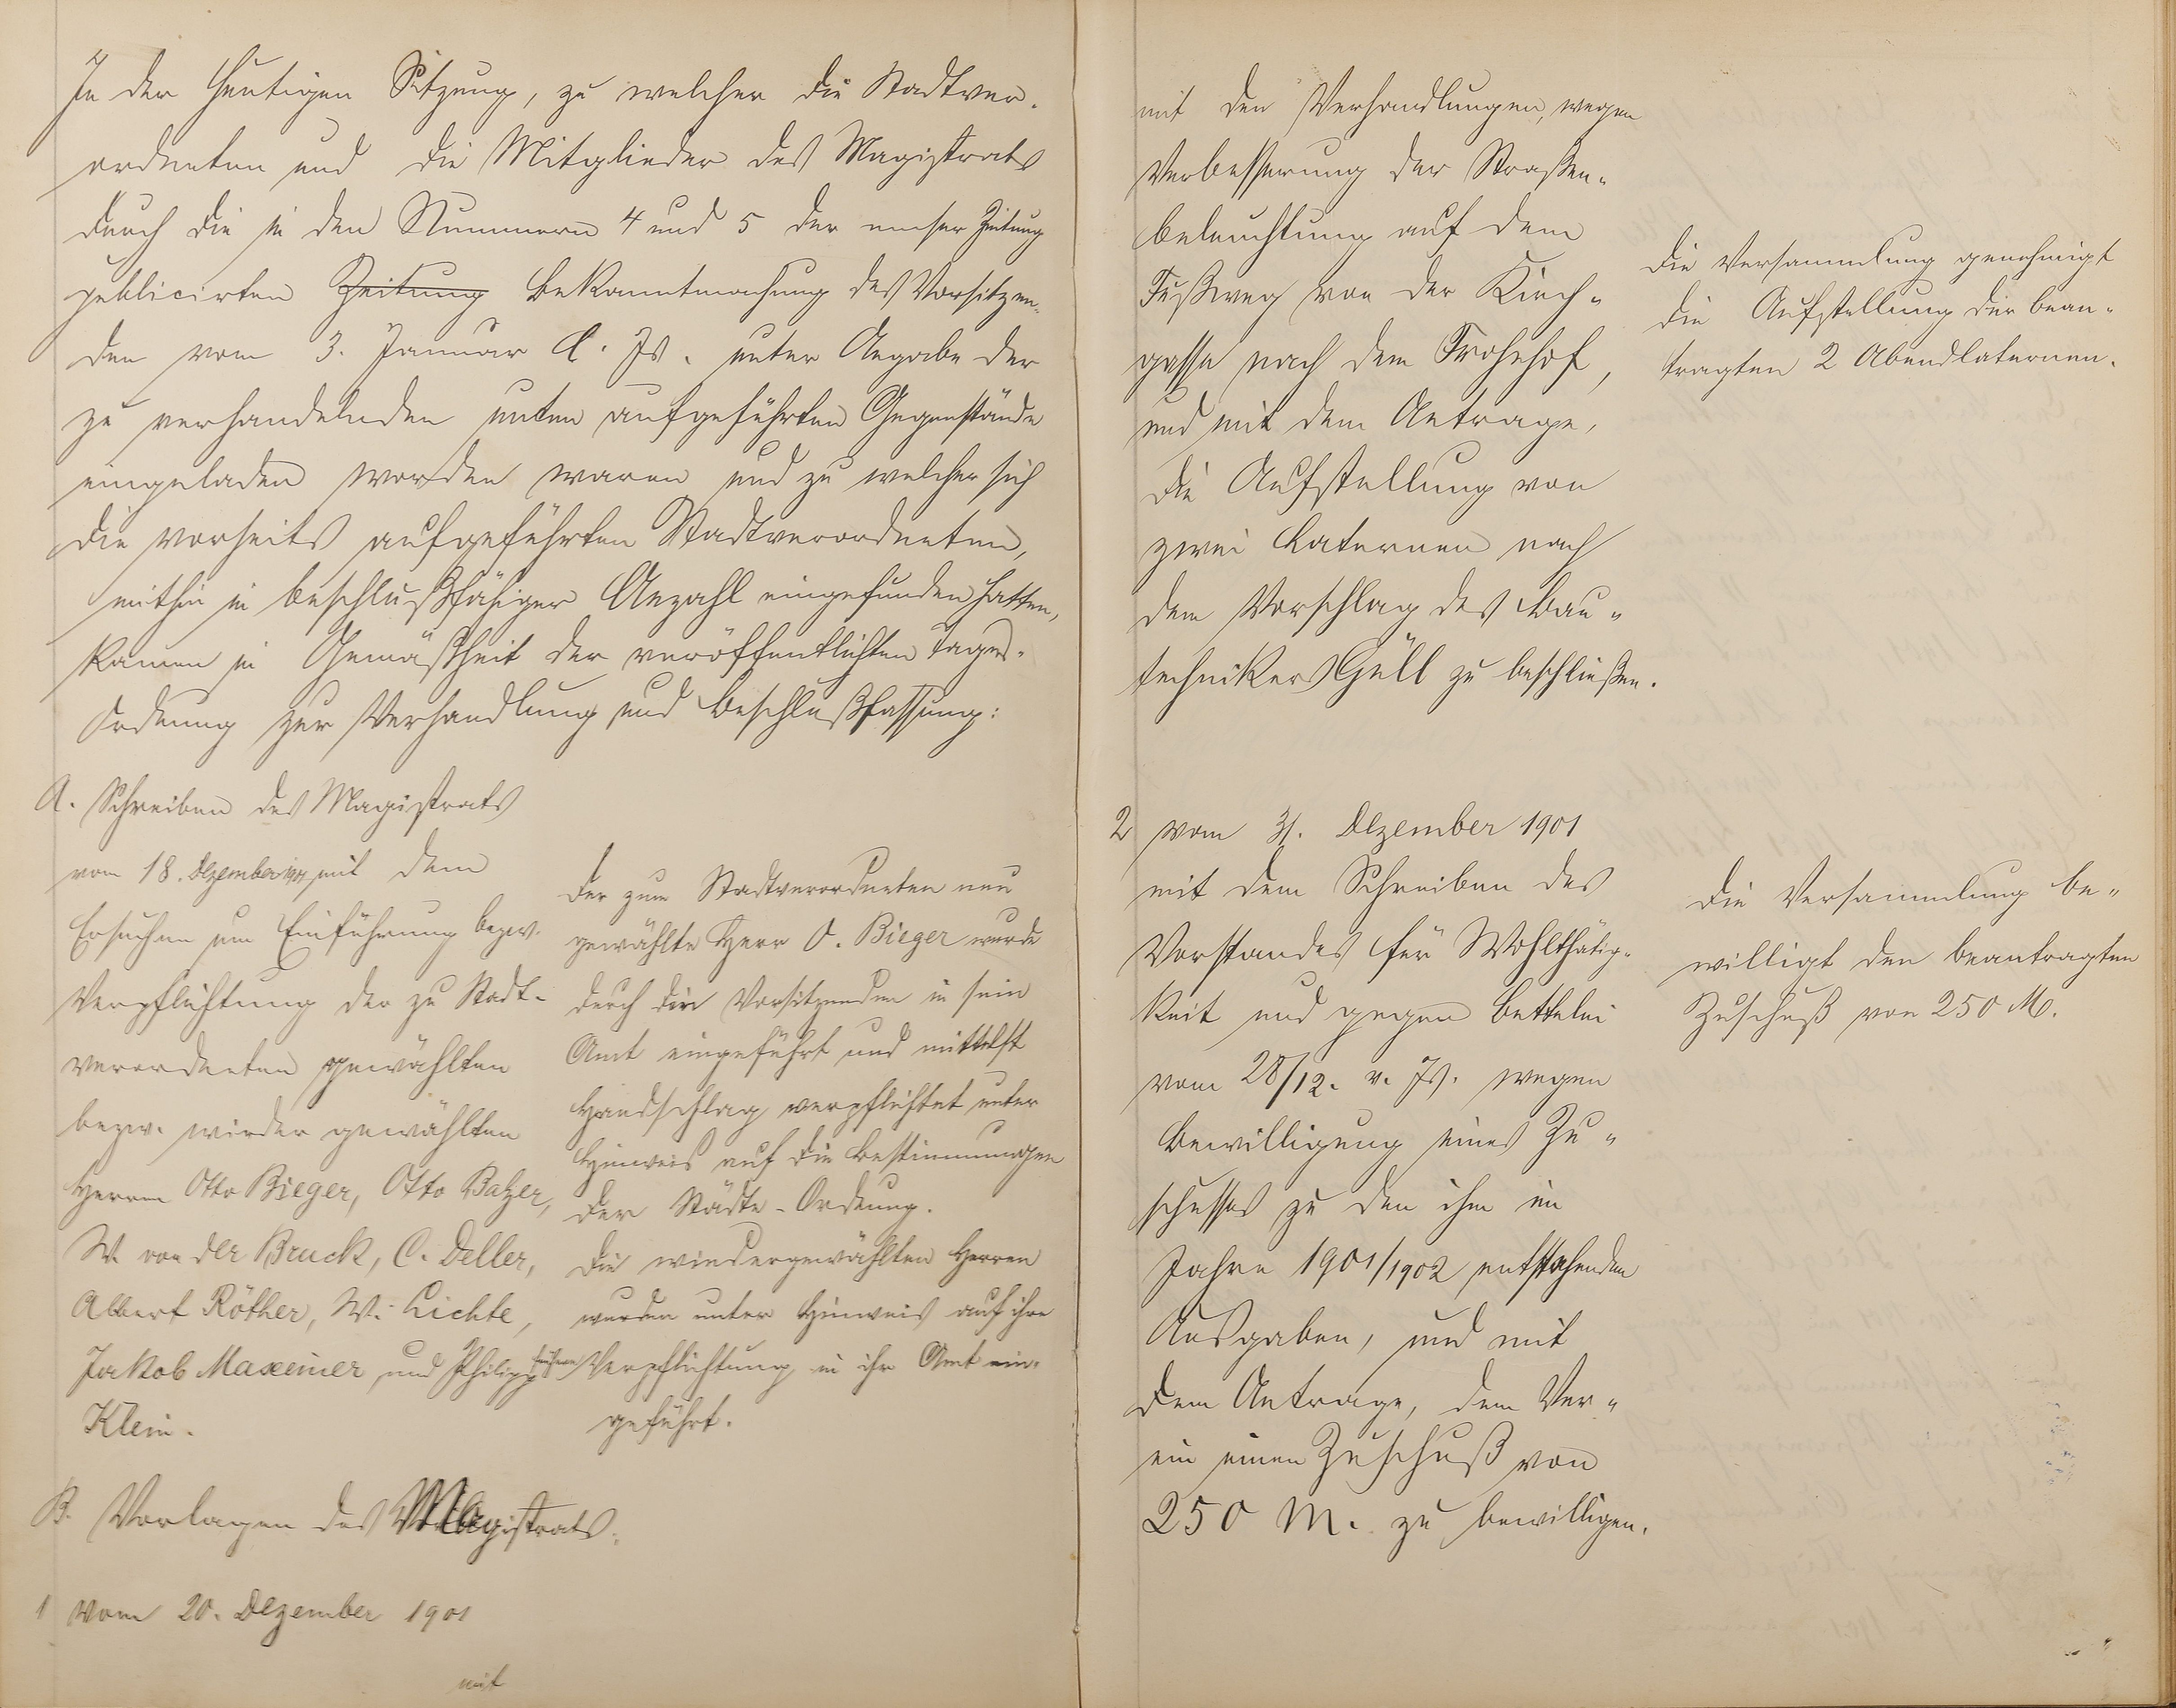 In der heutigen Sitzung, zu welcher die Stadtver-
ordneten und die Mitglieder des Magistrats
durch die in den Nummern 4 und 5 der emser Zeitung
publicirten Zeitung Bekanntmachung des Vorsitzen-
den vom 3. Januar l. Js. unter Angabe der
zu verhandelnden unten aufgeführten Gegenstände
eingeladen worden waren und zu welcher sich
die vorseits aufgeführten Stadtverordneten,
mithin in beschlußfähiger Anzahl eingefunden hatten,
kamen in Gemäßheit der veröffentlichten Tages-
Ordnung zur Verhandlung und Beschlußfassung:
A. Schreiben des Magistrats
vom 18. Dezember 1901 mit dem
Ersuchen um Einführung bezw.
Verpflichtung der zu Stadt-
verordneten gewählten
bezw. wieder gewählten
Herren Otto Bieger, Otto Balzer,
W. von der Bruck, C. Deller,
Albert Röther, W. Lichte,
Jakob Maxeiner und Philipp
Klein.
Der zum Stadtverordneten neu
gewählte Herr O. Bieger wurde
durch den Vorsitzenden in sein
Amt eingeführt und mittelst
Handschlag verpflichtet unter
Hinweis auf die Bestimmungen
der Städte-Ordnung.
Die wiedergewählten Herren
wurden unter Hinweis auf ihre
frühere Verpflichtung in ihr Amt ein-
geführt.
B. Vorlagen des Magistrats.
1 vom 20. Dezember 1901
mit
mit den Verhandlungen, wegen
Verbesserung der Straßen-
beleuchtung auf dem
Fußweg von der Kirch-
gasse nach dem Frohnhof,
und mit dem Antrage,
die Aufstellung von
zwei Laternen nach
dem Vorschlag des Bau-
technikers Güll zu beschließen.
Die Versammlung genehmigt
die Aufstellung der bean-
tragten 2 Abendlaternen.
2 vom 31. Dezember 1901
mit dem Schreiben des
Vorstandes für Wohlthätig-
keit und gegen Bettelei
vom 28/12. v. Js. wegen
Bewilligung eines Zu-
schusses zu den ihm im
Jahre 1901/1902 entstehenden
Ausgaben, und mit
dem Antrage, dem Ver-
ein einen Zuschuß von
250 M. zu bewilligen.
Die Versammlung be-
willigt den beantragten
Zuschuß von 250 M.